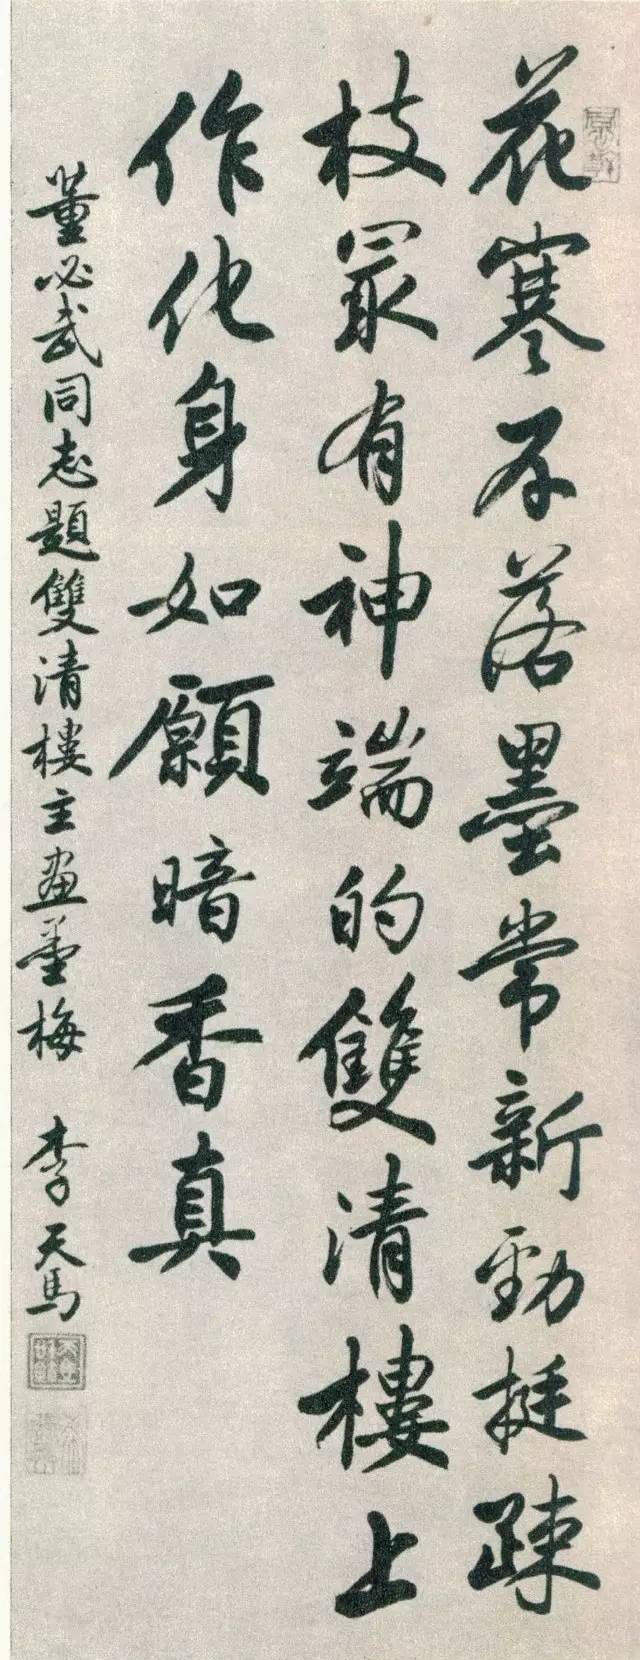 花寒不落墨常新勁挺疎
枝冣有神端的雙清樓上
作化身如願暗香真
董必武同志題雙清樓主畫墨梅 李天馬